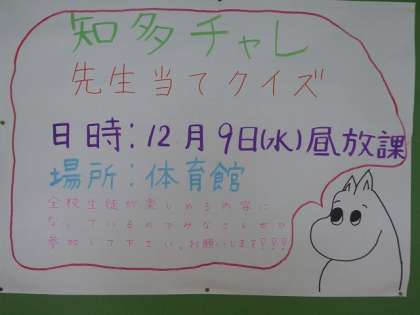 知多チャレ
先生当てクイズ
日時:12月9日(水)昼放課
場所:体育館
全校生徒が楽しめる内容に
なっているのでみなさんぜひ
参加して下さい。お願いします!!!!